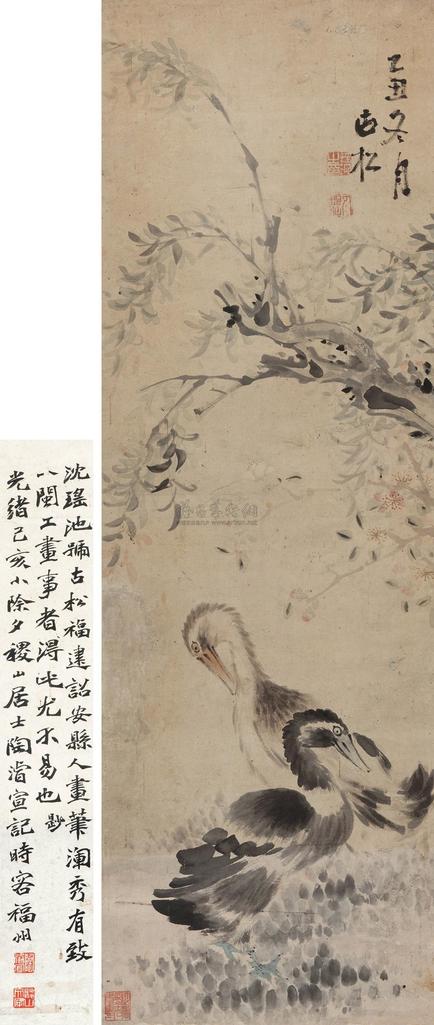 乙丑冬月
古松
沈瑶池號古松福建詔安縣人畫筆潤秀有致
八閩工畫事者得此尤不易也
光緒己亥小除夕稷山居士陶濬宣記時客福州